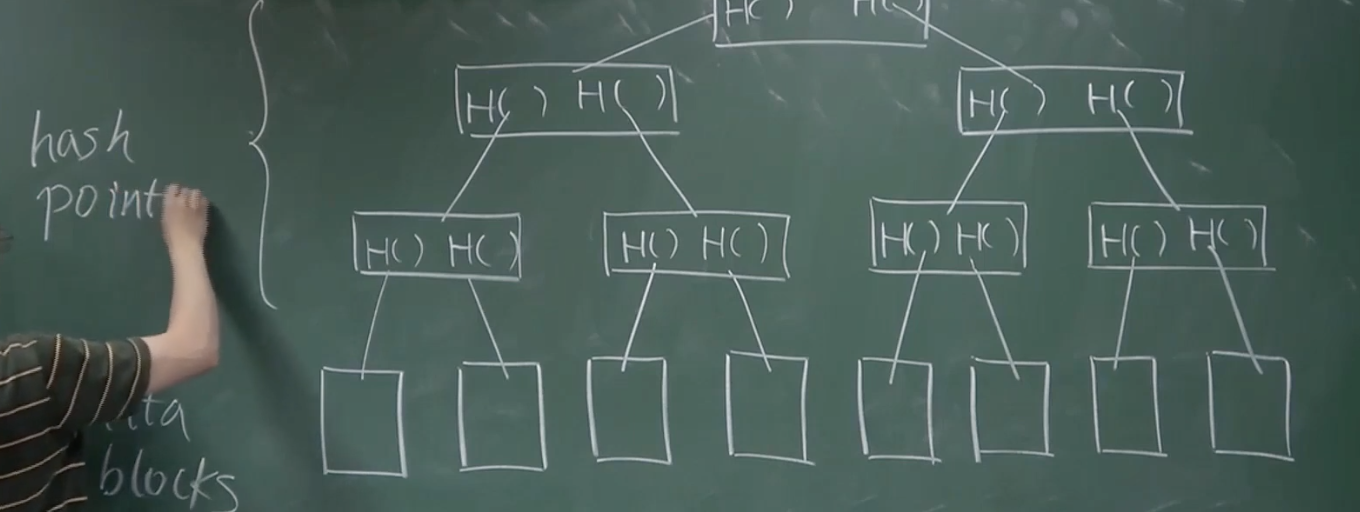 H( ) H( )
H( ) H( ) H( ) H( )
hash
point
H( ) H( ) H( ) H( ) H( ) H( ) H( ) H( )
blocks